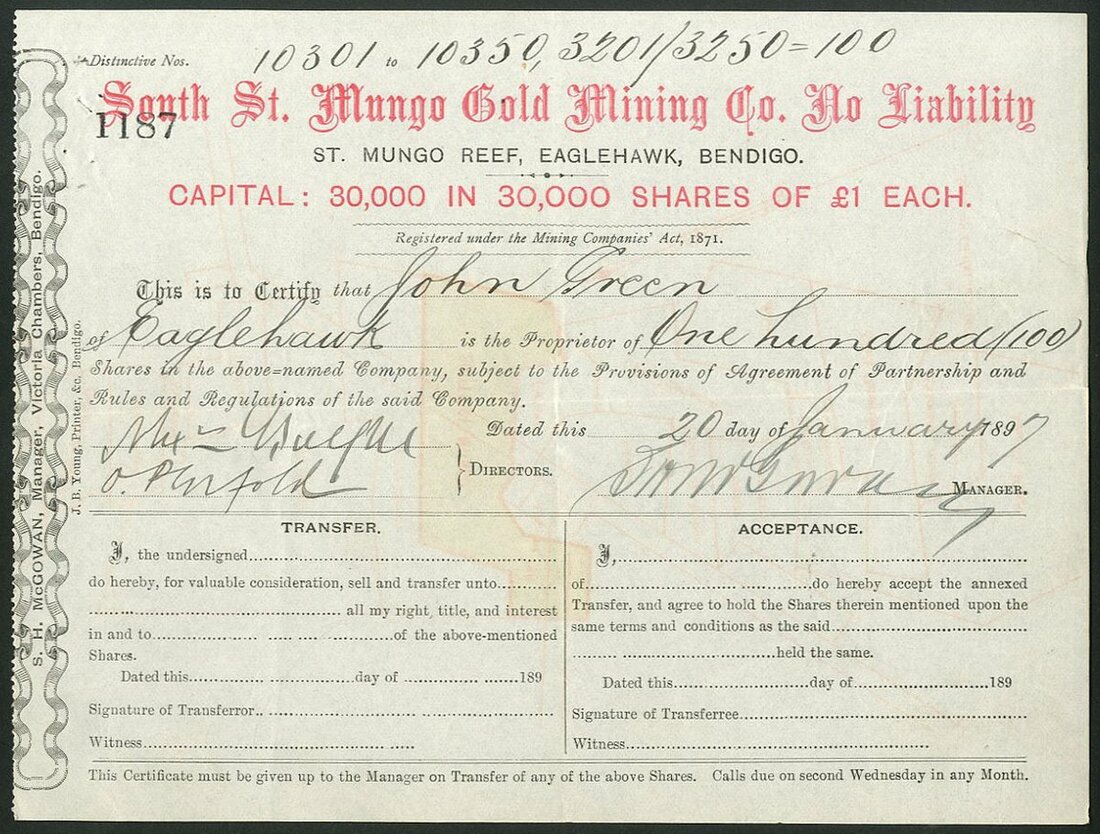 Distinctive Nos. 10301 to 10350, 3201/3250 = 100
South St. Mungo Gold Mining Co. No Liability
1187
ST. MUNGO REEF, EAGLEHAWK, BENDIGO.
CAPITAL: 30,000 IN 30,000 SHARES OF £1 EACH.
Registered under the Mining Companies' Act, 1871.
This is to Certify that John Green
of Eaglehawk is the Proprietor of One hundred (100)
Shares in the above=named Company, subject to the Provisions of Agreement of Partnership and
Rules and Regulations of the said Company.
Dated this 20 day of January 1897
DIRECTORS.
MANAGER.
TRANSFER.
I, the undersigned
do hereby, for valuable consideration, sell and transfer unto
all my right, title, and interest
in and to of the above-mentioned
Shares.
Dated this day of 189
Signature of Transferror
Witness
ACCEPTANCE.
I,
of do hereby accept the annexed
Transfer, and agree to hold the Shares therein mentioned upon the
same terms and conditions as the said
held the same.
Dated this day of 189
Signature of Transferree
Witness
This Certificate must be given up to the Manager on Transfer of any of the above Shares. Calls due on second Wednesday in any Month.
S. H. McGOWAN, Manager, Victoria Chambers, Bendigo.
J. B. Young, Printer, &c. Bendigo.